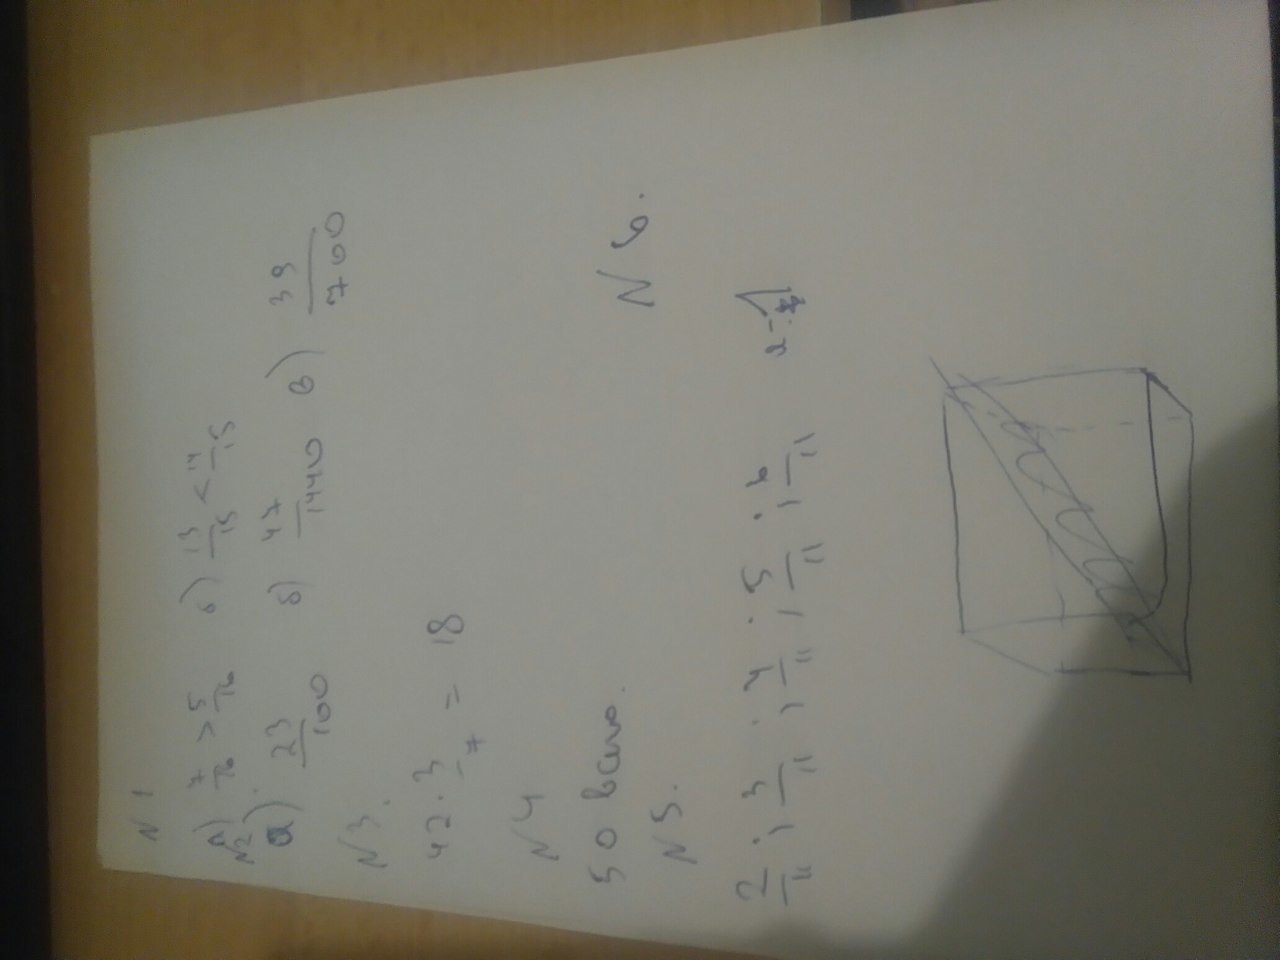 N 1
а) 7/16 > 5/16 б) 13/15 < 14/15
N2
а) 23/100 б) 47/1440 в) 39/700
N3.
42 · 3/7 = 18
N 4
50 всего.
N 5. N 6.
2/11 ; 3/11 ; 4/11 ; 5/11 ; 6/11